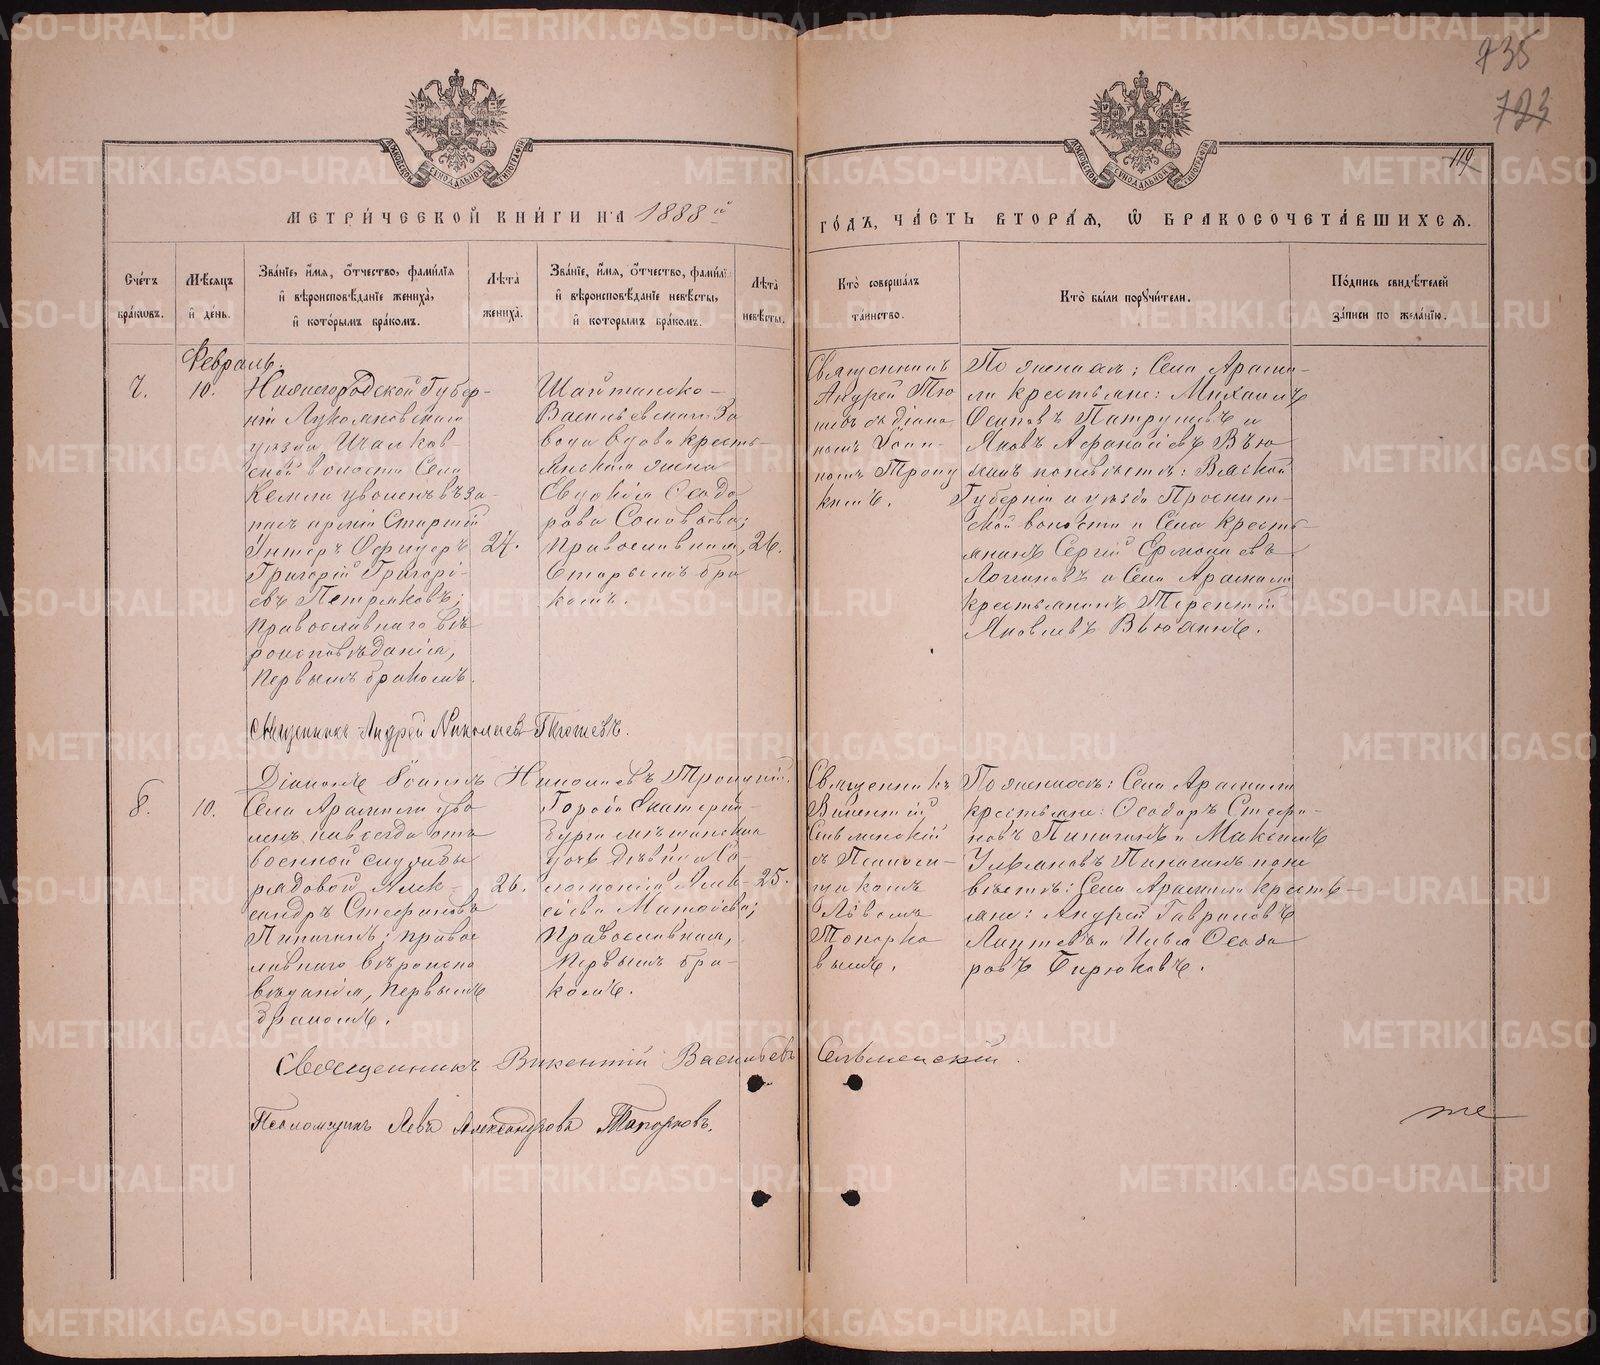 735
723
119
МЕТРИ́ЧЕСКОЙ КНИ́ГИ НА 1888 й
ГО́ДЪ, ЧА́СТЬ ВТОРА́Я, Ѡ БРАКОСОЧЕТА́ВШИХСЯ.
Сче́тъ бра́кѡвъ.
Мѣ́сяцъ и́ де́нь.
Зва́нїе, и́мя, ѻ́тчество, фами́лїя и́ вѣроисповѣ́данїе жениха̀, и́ кото́рымъ бра́комъ.
Лѣ́та жениха̀.
Зва́нїе, и́мя, ѻ́тчество, фами́лїя и́ вѣроисповѣ́данїе невѣ́сты, и́ кото́рымъ бра́комъ.
Лѣ́та невѣ́сты.
Кто̀ соверша́лъ та́инство.
Кто̀ бы́ли порꙋчи́тели.
По́дпись свидѣ́телей за́писи по жела́нїю.
Февраль.
7.
10.
Нижегородской Губер-
ніи Лукояновскаго
уѣзда Ичалков-
ской волости Села
Кемли уволенъ въ за-
пасъ арміи Старшій
Унтеръ Офицеръ
Григорій Григорі-
евъ Петряковъ;
Православнаго вѣ-
роисповѣданія,
первымъ бракомъ.
24.
Шайтанско-
Васильевскаго За
вода вдова кресть-
янская жена
Евдокія Ѳеодо
рова Соловьева;
Православная,
вторымъ бра
комъ.
26.
Священникъ
Андрей Тю
шевъ съ діако
номъ Іоан-
номъ Троиц
кимъ.
По женихѣ: Села Арами-
ля крестьяне: Михаилъ
Осиповъ Патрушевъ и
Яковъ Афанасіевъ Вью
жинъ по невѣстѣ: Вятской
Губерніи и уѣзда Просниц-
кой волости и Села кресть-
янинъ Сергій Ермолаевъ
Логиновъ и Села Арамиля
крестьянинъ Терентій
Яковлевъ Вьюжинъ.
Священникъ Андрей Николаевъ Тюшевъ.
Діаконъ Іоаннъ Николаевъ Троицкій.
8.
10.
Села Арамиля уво
ленъ навсегда отъ
военной службы
рядовой Алек-
сандръ Стефановъ
Пиначинъ; право
славнаго вѣроиспо
вѣданія, первымъ
бракомъ.
26.
Города Екатерин-
бурга мѣщанская
дочь дѣвица Со-
ломонія Алек-
сѣева Матвѣева;
Православная,
первымъ бра-
комъ.
25.
Священникъ
Викентій
Сельменскій
съ Псалом-
щикомъ
Львомъ
Топорко
вымъ.
По женихѣ: Села Арамиля
крестьяне: Ѳеодоръ Стефа-
новъ Пиначинъ и Максимъ
Ульяновъ Пиначинъ по не
вѣстѣ: Села Арамиля кресть-
яне: Андрей Гавриловъ
Лаптевъ и Илья Ѳеодо
ровъ Бирюковъ.
Священникъ Викентій Васильевъ Сельменскій.
Псаломщикъ Левъ Александровъ Топорковъ.
те